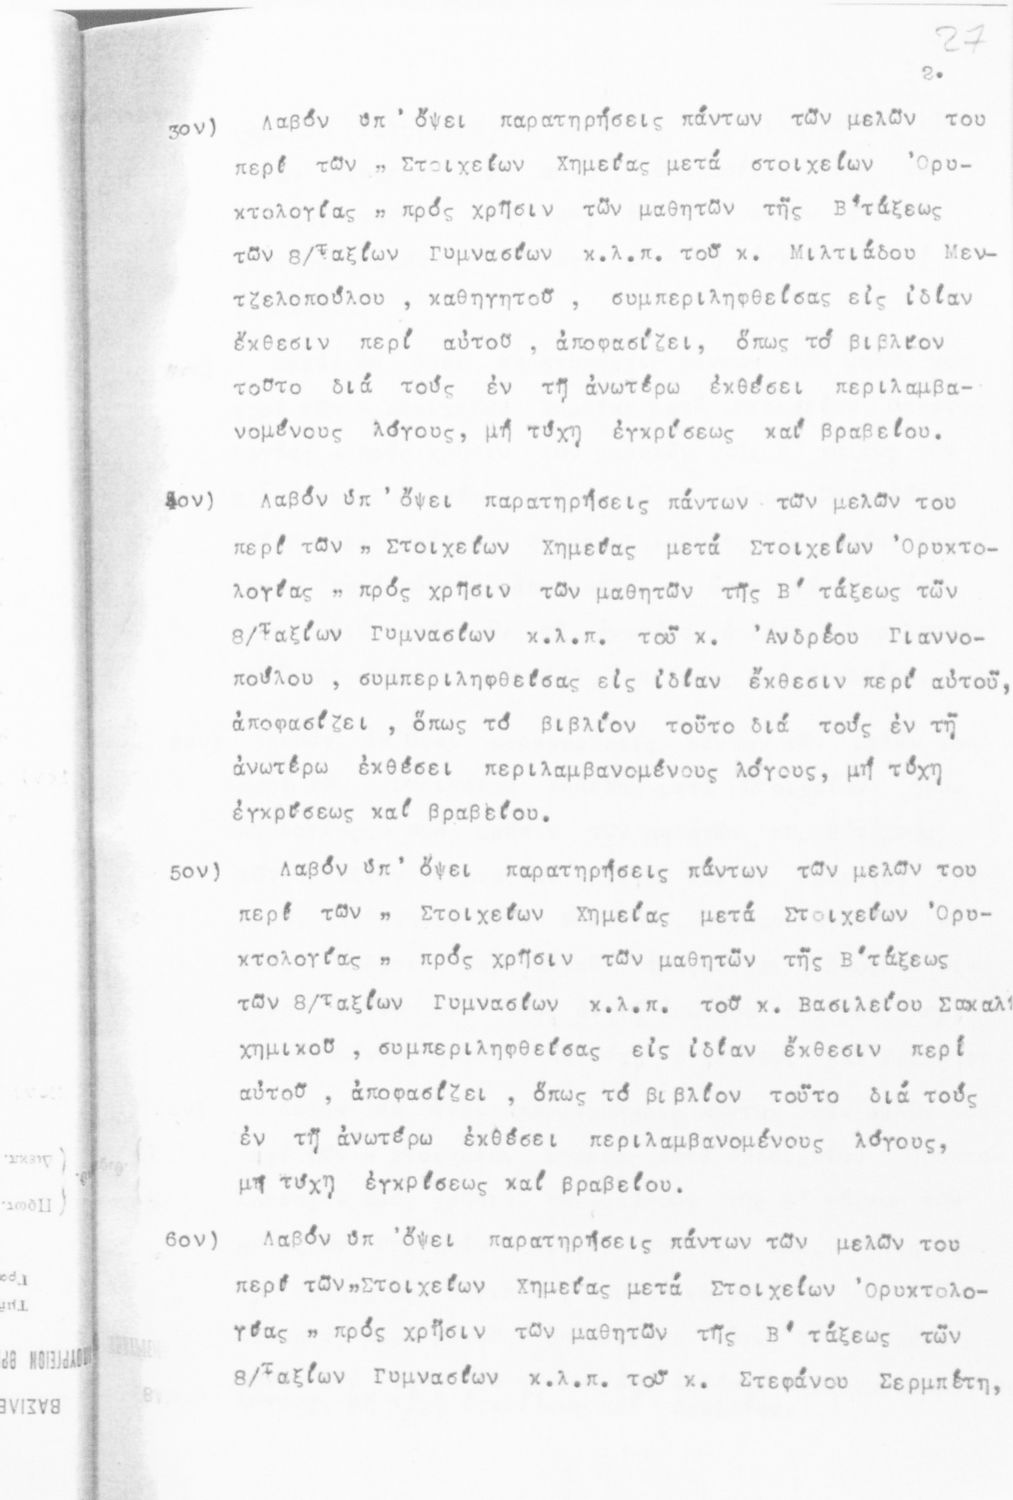 27
2.
3ον) Λαβόν ὑπ' ὄψει παρατηρήσεις πάντων τῶν μελῶν του
περί τῶν „ Στοιχείων Χημείας μετά στοιχείων Ὀρυ-
κτολογίας „ πρός χρῆσιν τῶν μαθητῶν τῆς Β'τάξεως
τῶν 8/Ταξίων Γυμνασίων κ.λ.π. τοῦ κ. Μιλτιάδου Μεν-
τζελοπούλου , καθηγητοῦ , συμπεριληφθείσας εἰς ἰδίαν
ἔκθεσιν περί αὐτοῦ , ἀποφασίζει, ὅπως τό βιβλίον
τοῦτο διά τούς ἐν τῇ ἀνωτέρω ἐκθέσει περιλαμβα-
νομένους λόγους, μή τύχῃ ἐγκρίσεως καί βραβείου.
4ον) Λαβόν ὑπ' ὄψει παρατηρήσεις πάντων τῶν μελῶν του
περί τῶν „ Στοιχείων Χημείας μετά Στοιχείων Ὀρυκτο-
λογίας „ πρός χρῆσιν τῶν μαθητῶν τῆς Β' τάξεως τῶν
8/Ταξίων Γυμνασίων κ.λ.π. τοῦ κ. Ἀνδρέου Γιαννο-
πούλου , συμπεριληφθείσας εἰς ἰδίαν ἔκθεσιν περί αὐτοῦ,
ἀποφασίζει , ὅπως τό βιβλίον τοῦτο διά τούς ἐν τῇ
ἀνωτέρω ἐκθέσει περιλαμβανομένους λόγους, μή τύχῃ
ἐγκρίσεως καί βραβείου.
5ον) Λαβόν ὑπ' ὄψει παρατηρήσεις πάντων τῶν μελῶν του
περί τῶν „ Στοιχείων Χημείας μετά Στοιχείων Ὀρυ-
κτολογίας „ πρός χρῆσιν τῶν μαθητῶν τῆς Β'τάξεως
τῶν 8/Ταξίων Γυμνασίων κ.λ.π. τοῦ κ. Βασιλείου
χημικοῦ , συμπεριληφθείσας εἰς ἰδίαν ἔκθεσιν περί
αὐτοῦ , ἀποφασίζει , ὅπως τό βιβλίον τοῦτο διά τούς
ἐν τῇ ἀνωτέρω ἐκθέσει περιλαμβανομένους λόγους,
μή τύχῃ ἐγκρίσεως καί βραβείου.
6ον) Λαβόν ὑπ' ὄψει παρατηρήσεις πάντων τῶν μελῶν του
περί τῶν„Στοιχείων Χημείας μετά Στοιχείων Ὀρυκτολο-
γίας „ πρός χρῆσιν τῶν μαθητῶν τῆς Β' τάξεως τῶν
8/Ταξίων Γυμνασίων κ.λ.π. τοῦ κ. Στεφάνου Σερμπέτη,